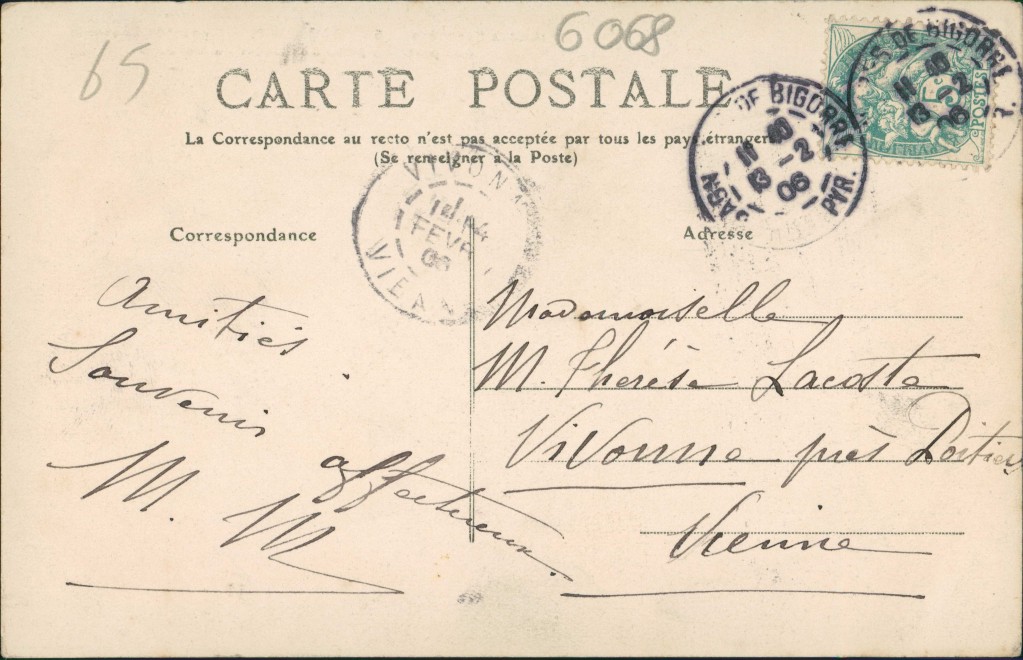 65
6068
CARTE POSTALE
La Correspondance au recto n'est pas acceptée par tous les pays étrangers
(Se renseigner à la Poste)
DE BIGORRE
11 40
13 -2
06
PYR.
DE BIGORRE
11 40
13 -2
06
5
POSTES
VIVONNE
14
FEVR
06
VIENNE
Correspondance
Adresse
Amitiés
Souvenir
affectueux.
M. M
Mademoiselle
M. Thérèse Lacoste
Vivonne près Poitiers
Vienne